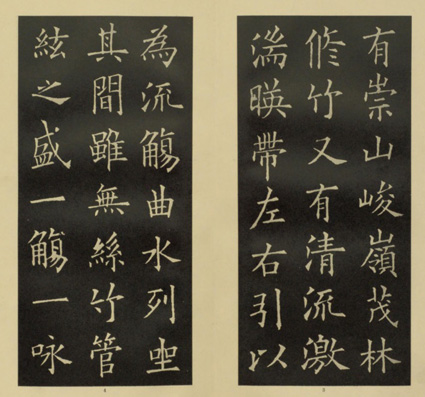 有崇山峻嶺茂林
修竹又有清流激
湍暎帶左右引以
為流觴曲水列坐
其間雖無絲竹管
絃之盛一觴一咏